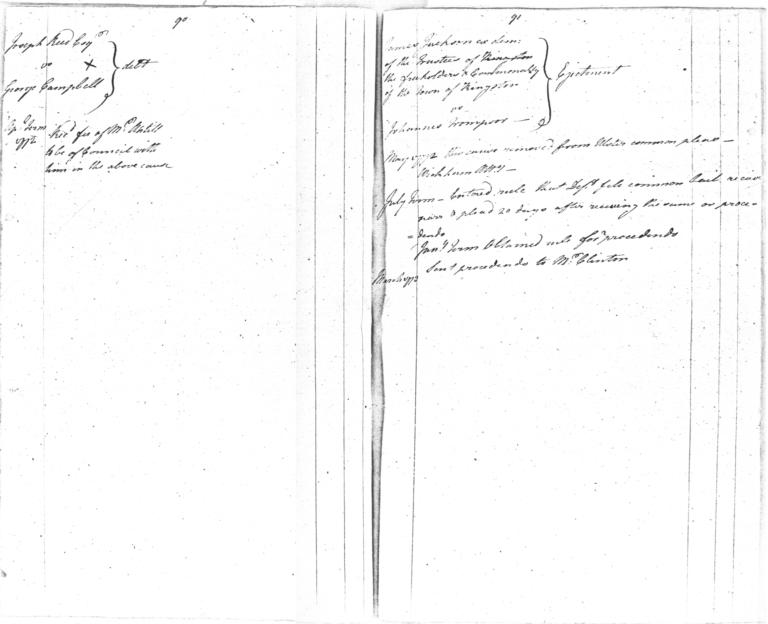 90
Joseph Reed Esqr
vs X } debt
George Campbell
Ap: Term
1772 Recd fee of Mr
to be of Council with
him in the above cause
91
James Jackson ex dem:
of the Trustees of Kingston
the freeholders & Commonalty } Ejectment
of the town of Kingston
vs
Johannes
May 1772 this cause removed from Ulster common pleas —
Wickham Atty —
July Term — Entered rule that Deft file common bail receive
narr & plead 20 days after receiving the same or proce-
=dendo
Jany Term Obtained rule for procedendo
March 1773 Sent procedendo to Mr Clinton